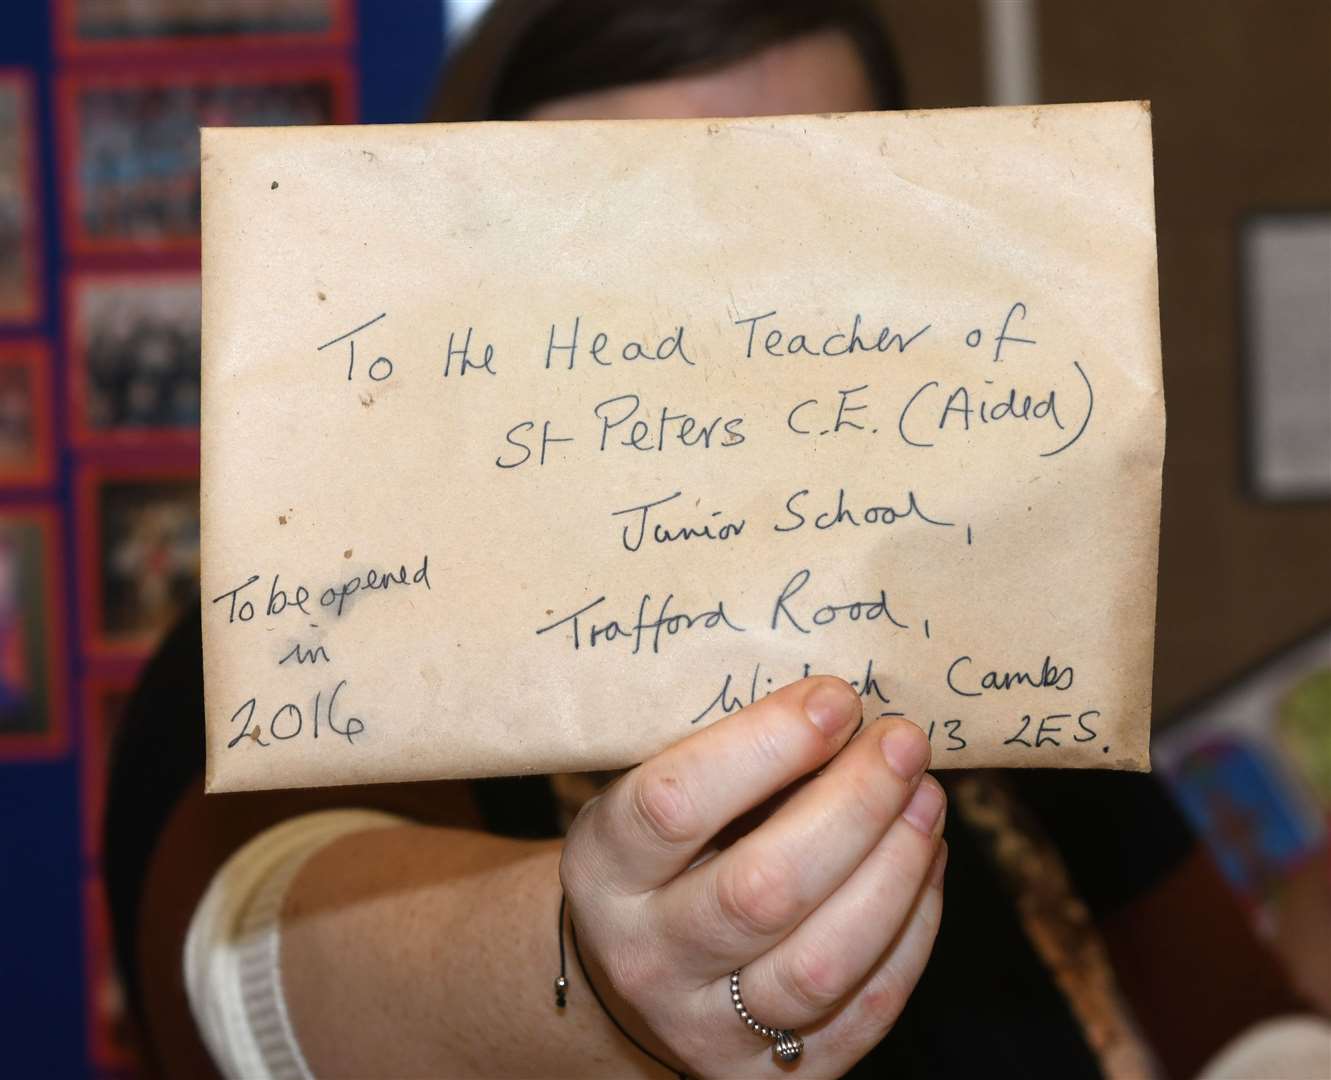 To the Head Teacher of
St Peters C.E. (Aided)
Junior School,
Trafford Road,
Cambs
13 2ES.
To be opened
in
2016